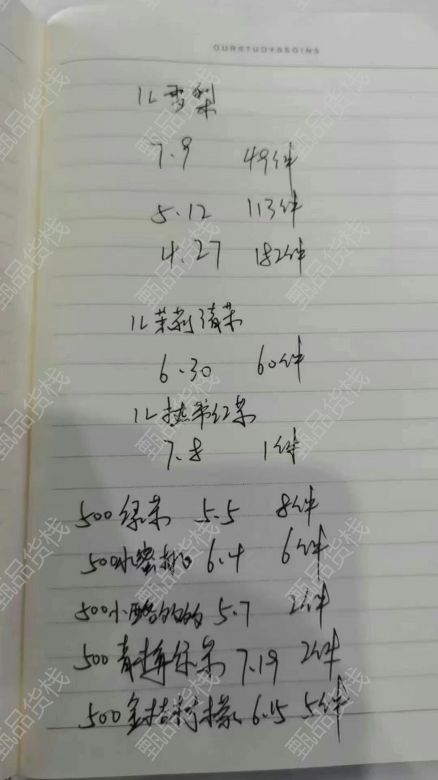 OURSTUDYBEGINS
1L雪梨
7.9 49件
5.12 113件
4.27 182件
1L茉莉清茶
6.30 60件
1L热带红茶
7.8 1件
500绿茶 5.5 8件
500水蜜桃 6.4 6件
500小酪的的 5.7 2件
500青梅绿茶 7.19 2件
500金桔柠檬 6.15 5件
甄品货栈